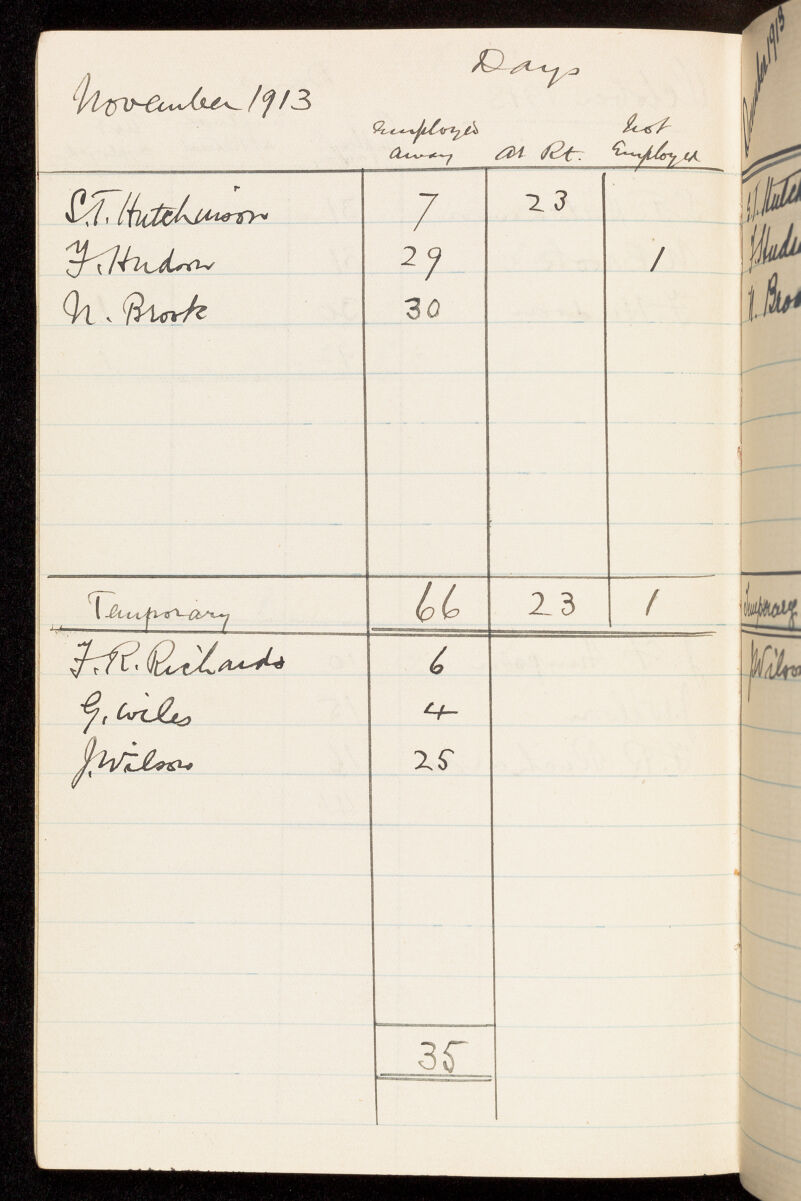 Days
November 1913
Employed away At Rt. Not Employed
S.T. Hutchinson 7 23
F. Hudson 29 1
N. Brook 30
Temporary 66 23 1
F. R. Richards 6
G. Wiles 4
J. Wilson 25
35
December 1913
Temporary
J. Wilson